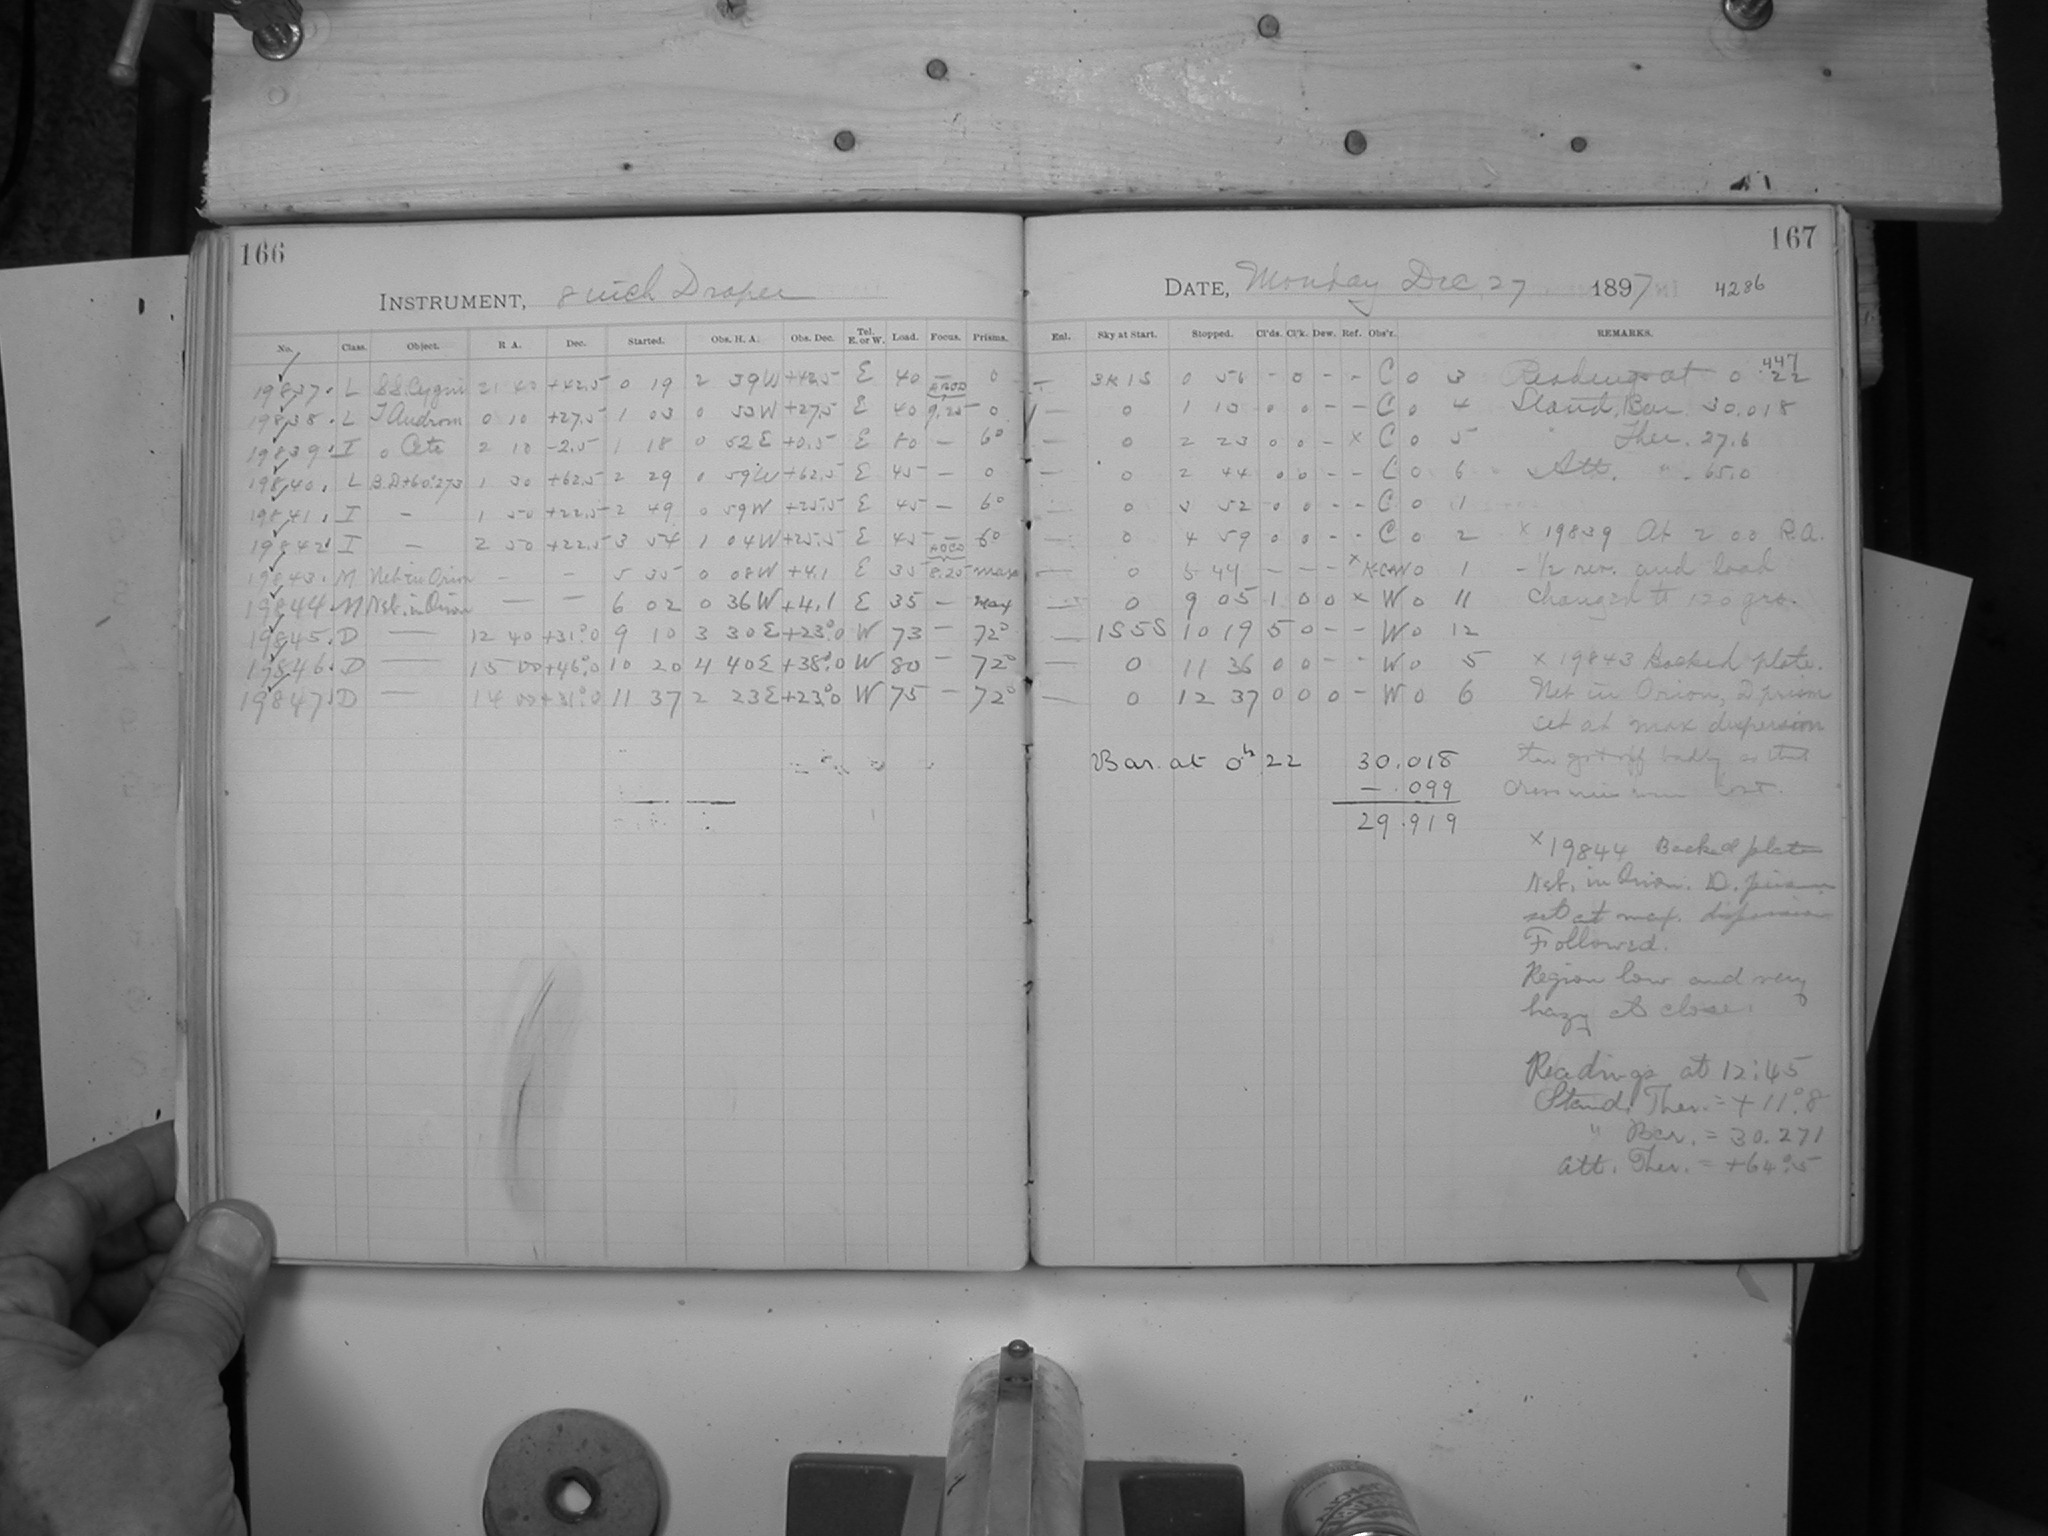 166
INSTRUMENT, 8 inch Draper
No. Class. Object. R A. Dec. Started. Obs. H. A. Obs. Dec. Tel. E. or W. Load. Focus. Prisms.
19837. L SS Cygni 21 40 +42.5 0 19 2 39W +42.5 E 40 — 0
19838. L T Androm 0 10 +27.5 1 03 0 53W +27.5 E 40 9.25 0
19839. I o Ceti 2 10 -2.5 1 18 0 52E +0.5 E 80 — 6°
19840. L B.D+60°273 1 30 +62.5 2 29 0 59W +62.5 E 45 — 0
19841. I — 1 50 +22.5 2 49 0 59W +25.5 E 45 — 6°
19842. I — 2 50 +22.5 3 54 1 04W +25.5 E 45 — 6°
19843. M Neb in Orion — — 5 35 0 08W +4.1 E 35 8.25 max
19844. M Neb. in Orion — — 6 02 0 36W +4.1 E 35 — Max
19845. D — 12 40 +31°.0 9 10 3 30E +23°.0 W 73 — 72°
19846. D — 15 00 +46°.0 10 20 4 40E +38°.0 W 80 — 72°
19847. D — 14 00 +31°.0 11 37 2 23E +23°.0 W 75 — 72°
167
DATE, Monday Dec 27 1897 4286
Enl. Sky at Start. Stopped. Cl'ds. Cl'k. Dew. Ref. Obs'r. REMARKS.
— 3K1S 0 56 - 0 - - C 0 3
— 0 1 13 0 0 - - C 0 4
— 0 2 23 0 0 - x C 0 5
— 0 2 44 0 0 - - C 0 6
— 0 3 52 0 0 - - C 0 1
— 0 4 59 0 0 - - C 0 2
— 0 5 44 — - - x 0 1
— 0 9 05 1 0 0 x W 0 11
— 1S5S 10 19 5 0 - - W 0 12
— 0 11 36 0 0 - - W 0 5
— 0 12 37 0 0 0 - W 0 6
Bar. at 0h 22 30.018
- .099
29.919
.447
Readings at 0 22
Stand. Bar. 30.018
" Ther. 27.6
Att. " 65.0
x 19839 At 2 00 R.A.
- 1/2 rev. and load
changed to 120 grs.
x 19843 Backed plate.
Neb in Orion, D prism
set at max dispersion
x 19844 Backed plate
Neb. in Orion. D. prism
set at max. dispersion
Followed.
Region low and very
hazy at close.
Readings at 12:45
Stand. Ther. = +11°.8
" Bar. = 30.271
Att. Ther. = +64°.5